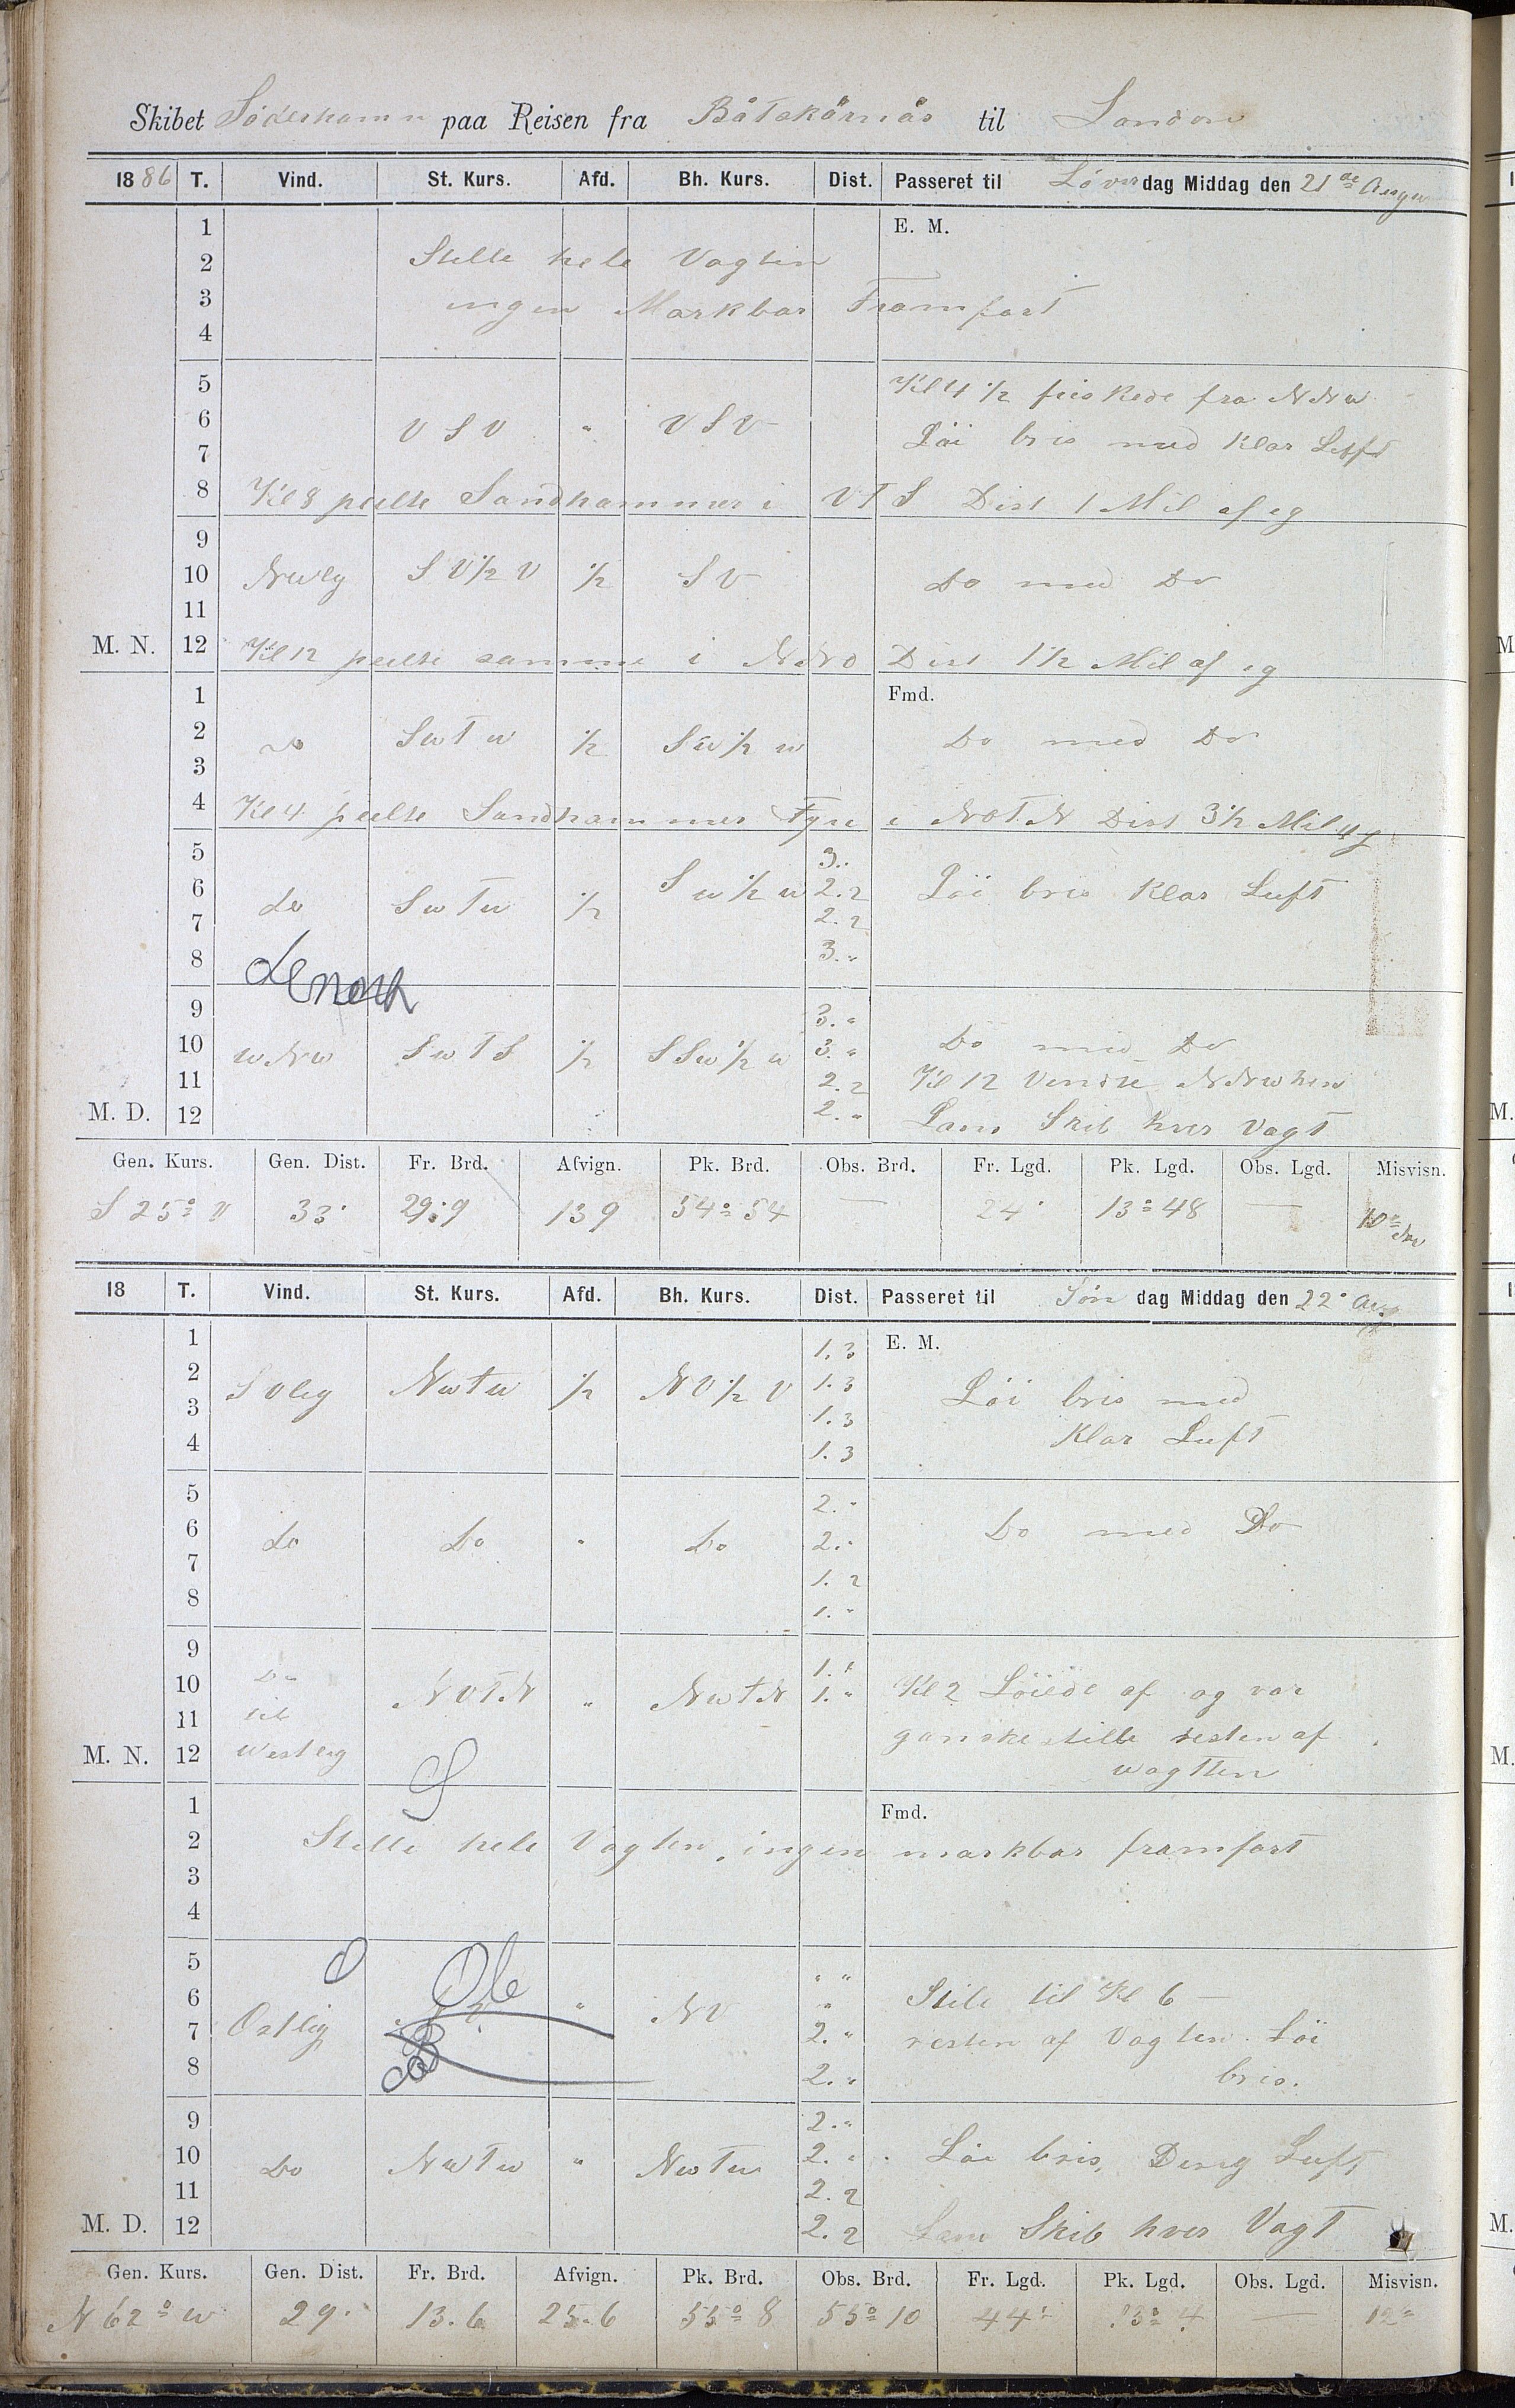 Skibet Söderhamn paa Reisen fra Båtskärnäs til London
1886 T. Vind. St. Kurs. Afd. Bh. Kurs. Dist. Passeret til Löver dag Middag den 21 de Augu
1 E. M.
2 Stille hele Vagten
3 ingen Markbar Framfart
4
5 Kl 4 1/2 friskede fra NNw
6 V S V " V S V
7 Löi bris med Klar Luft
8 Kl 8 peilte Sandhammer i VTS Dist 1 Mil af eg
9
10 Nwlg S V 1/2 V 1/2 S V Do med Do
11
M. N. 12 Kl 12 peilte samme i NNO Dist 1 1/2 Mil af eg
1 Fmd.
2 Do SwTw 1/2 Sw 1/2 w Do med Do
3
4 Kl 4 peilte Sandhammer Fyr i NOTN Dist 3 1/2 Mil
5 3..
6 do SwTw 1/2 Sw 1/2 w 2.2 Löi bris Klar Luft
7 2.2
8 3."
9 3."
10 wNw SwTS 1/2 SSw 1/2 w 3." Do med Do
11 2.2 Kl 12 Vendte NNw
M. D. 12 2." Lens Skib hver Vagt
Gen. Kurs. Gen. Dist. Fr. Brd. Afvign. Pk. Brd. Obs. Brd. Fr. Lgd. Pk. Lgd. Obs. Lgd. Misvisn.
S 25° V 33' 29.9 139 54° 54 — 24' 13° 48 — 10°
18 T. Vind. St. Kurs. Afd. Bh. Kurs. Dist. Passeret til Sön dag Middag den 22' Aug
1 1.3 E. M.
2 S Vlig NwTw 1/2 NV 1/2 V 1.3 Löi bris med
3 1.3
4 1.3 Klar Luft
5 2."
6 do Do " Do 2." Do med Do
7 1.2
8 1."
9 1."
10 Do NVTN " NwTN 1." Kl 2 Löiede af og var
11 til ganske stille resten af
M. N. 12 Westlig wagtten
1 Fmd.
2 Stille hele Vagten, ingen markbar framfart
3
4
5 " "
6 " Stile til Kl 6 —
7 Ostlig " NV 2." resten af Vagten Löi
8 2." bris.
9 2."
10 Do NwTw " NwTw 2." Löi bris, Disig Luft
11 2.2
M. D. 12 2.2 Lens Skib hver Vagt
Gen. Kurs. Gen. Dist. Fr. Brd. Afvign. Pk. Brd. Obs. Brd. Fr. Lgd. Pk. Lgd. Obs. Lgd. Misvisn.
N 62° w 29' 13.6 25.6 55° 8 55° 10 44' 13° 4 — 12°